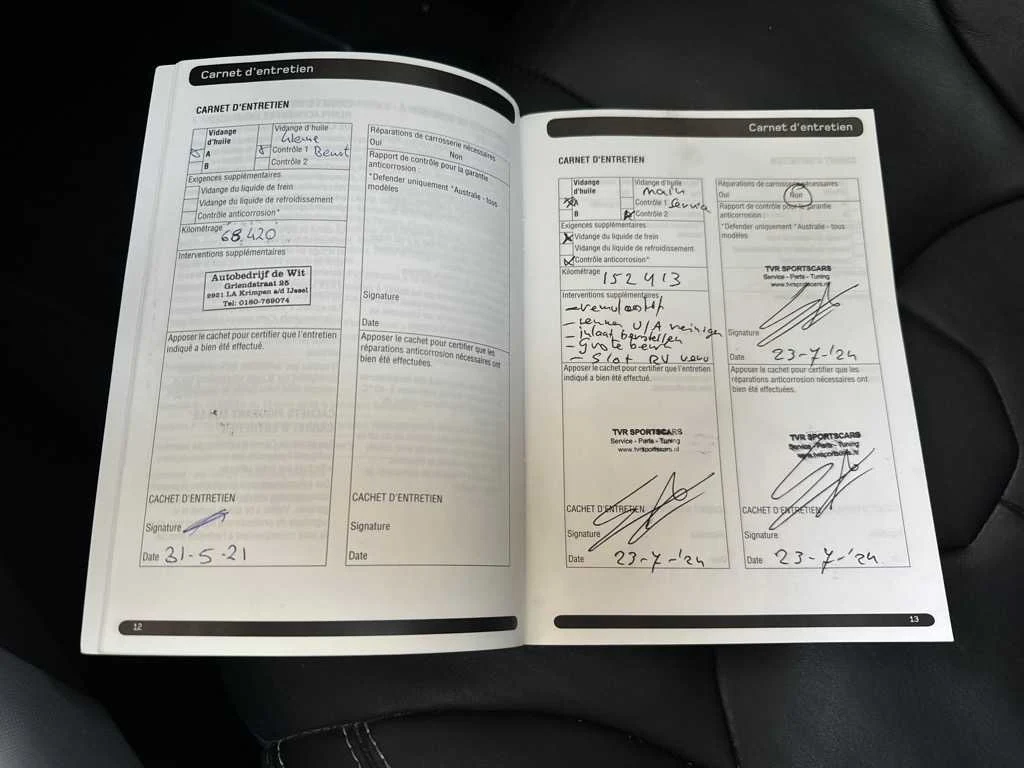 Carnet d'entretien
CARNET D'ENTRETIEN
Vidange d'huile
Vidange
d'huile
A
Contrôle 1
B
Contrôle 2
Exigences supplémentaires
Vidange du liquide de frein
Vidange du liquide de refroidissement
Contrôle anticorrosion*
Kilométrage
68.420
Interventions supplémentaires
Autobedrijf de Wit
Griendstraat 25
2921 LA Krimpen a/d IJssel
Tel: 0180-769074
Apposer le cachet pour certifier que l'entretien
indiqué a bien été effectué.
CACHET D'ENTRETIEN
Signature
Date 31-5-21
Réparations de carrosserie nécessaires
Oui Non
Rapport de contrôle pour la garantie
anticorrosion :
*Defender uniquement *Australie - tous
modèles
Signature
Date
Apposer le cachet pour certifier que les
réparations anticorrosion nécessaires ont
bien été effectuées.
CACHET D'ENTRETIEN
Signature
Date
12
Carnet d'entretien
CARNET D'ENTRETIEN
Vidange d'huile
Vidange
d'huile
main
A
Contrôle 1 Service
B
Contrôle 2
Exigences supplémentaires
Vidange du liquide de frein
Vidange du liquide de refroidissement
Contrôle anticorrosion*
Kilométrage
152413
Interventions supplémentaires
- remvloeistof
- remmen V/A reinigen
- inlaat
- grote beurt
- Slot RV
Apposer le cachet pour certifier que l'entretien
indiqué a bien été effectué.
TVR SPORTSCARS
Service - Parts - Tuning
www.tvrsportscars.nl
CACHET D'ENTRETIEN
Signature
Date 23-7-'24
Réparations de carrosserie nécessaires
Oui Non
Rapport de contrôle pour la garantie
anticorrosion :
*Defender uniquement *Australie - tous
modèles
TVR SPORTSCARS
Service - Parts - Tuning
www.tvrsportscars.nl
Signature
Date 23-7-'24
Apposer le cachet pour certifier que les
réparations anticorrosion nécessaires ont
bien été effectuées.
TVR SPORTSCARS
Service - Parts - Tuning
www.tvrsportscars.nl
CACHET D'ENTRETIEN
Signature
Date 23-7-'24
13